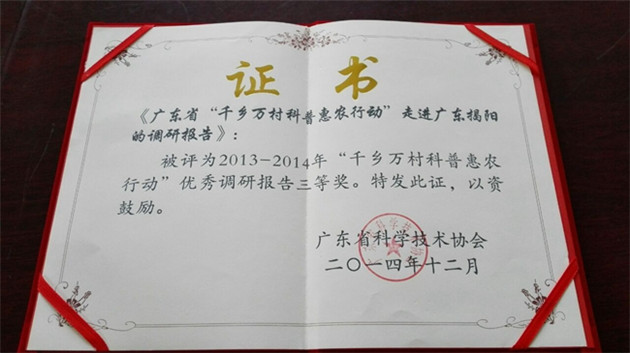 证书
《广东省“千乡万村科普惠农行动”走进广东揭阳
的调研报告》：
被评为2013-2014年“千乡万村科普惠农
行动”优秀调研报告三等奖。特发此证，以资
鼓励。
广东省科学技术协会
二〇一四年十二月